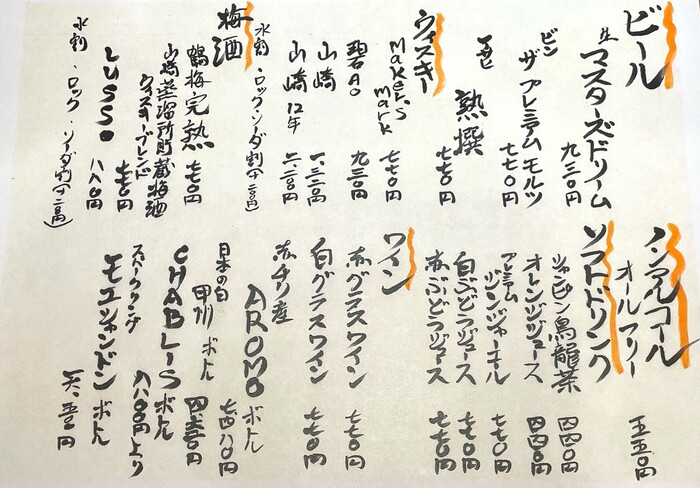 ビール
生 マスターズドリーム 九三〇円
ビン ザ プレミアムモルツ 七七〇円
熟撰 七七〇円
ウィスキー
Makers Mark 七七〇円
碧Ao 九三〇円
山崎 一、三二〇円
山崎12年 二、二〇〇円
水割・ロック・ソーダ割
梅酒
鶴梅完熟 七七〇円
山崎蒸溜所貯蔵梅酒
ウイスキーブレンド 七七〇円
LUSSO 八八〇円
水割・ロック・ソーダ割
ノンアルコール
オールフリー 五五〇円
ソフトドリンク
ジャスミン烏龍茶 四四〇円
オレンジジュース 四四〇円
プレミアムジンジャーエール 七七〇円
白ぶどうジュース 七七〇円
赤ぶどうジュース 七七〇円
ワイン
赤グラスワイン 七七〇円
白グラスワイン 七七〇円
赤チリ産
AROMO ボトル
日本の白 七四八〇円
甲州 ボトル
CHABLIS ボトル
スパークリング 八八〇〇円より
モエシャンドン ボトル